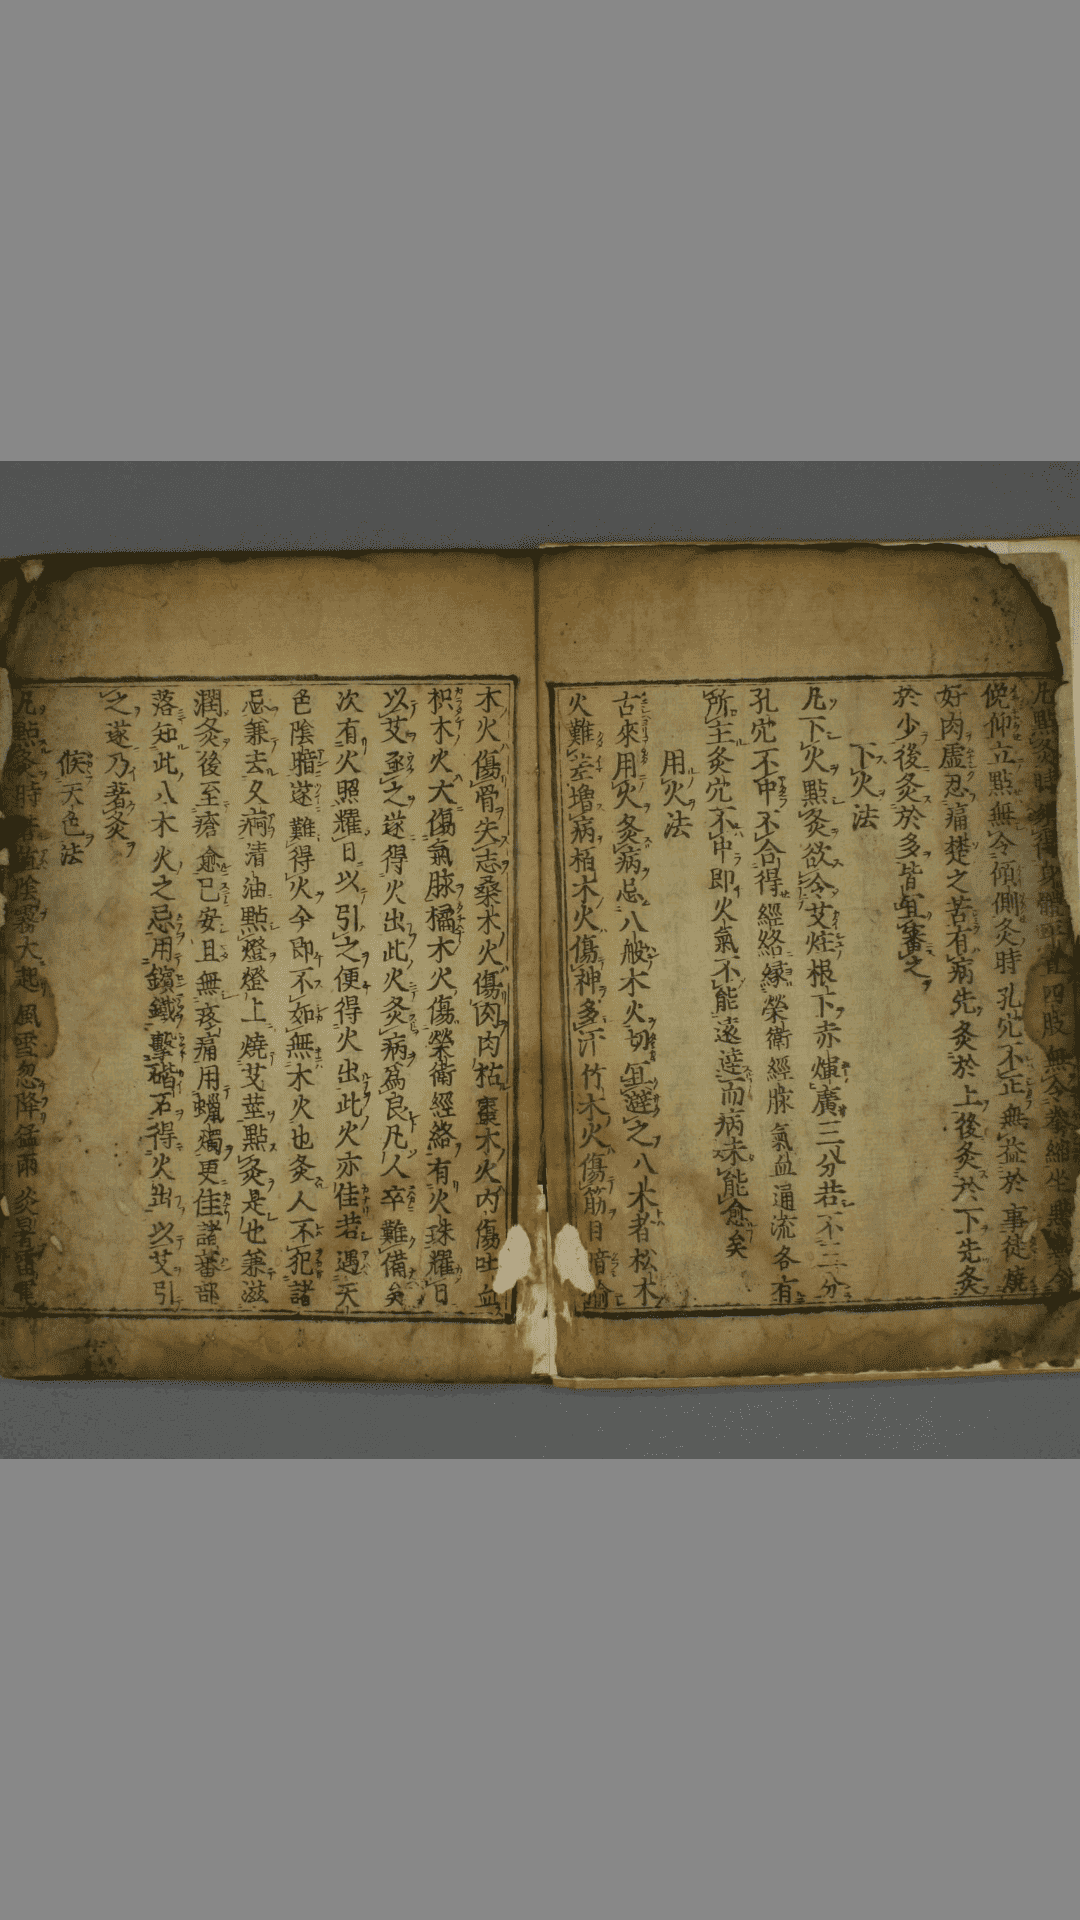 凡點灸時須得身體平直四肢無令拳縮坐點無令
俛仰立點無令傾側灸時孔穴不正無益於事徒燒
好肉虛忍痛楚之苦有病先灸於上後灸於下先灸
於少後灸於多皆宜審之
下火法
凡下火點灸欲令艾炷根下赤煇廣三分若不三分
孔穴不中不合得經絡縁榮衛經脉氣血通流各有
所主灸穴不中即火氣不能遠達而病未能愈矣
用火法
古來用火灸病忌八般木火切宜避之八木者松木
火難差増病栢木火傷神多汗竹木火傷筋目暗榆
木火傷骨失志桑木火傷肉肉枯棗木火内傷吐血
枳木火大傷氣脉橘木火傷榮衛經絡有火珠耀日
以艾丞之遂得火出此火灸病爲良凡人卒難備矣
次有火照耀日以引之便得火出此火亦佳若遇天
色陰暗遂難得火今即不如無木火也灸人不犯諸
忌兼去久痾清油點燈燈上燒艾莖點灸是也兼滋
潤灸後至瘡愈已安且無疼痛用蠟燭更佳諸蕃部
落知此八木火之忌用鑌鐵擊碏石得火出以艾引
之遂乃著灸
候天色法
凡點灸時 陰霧大起風雪忽降猛雨炎暑雷電